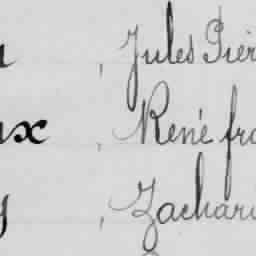 , Jules Pier
ux , René fra
y , Zachari